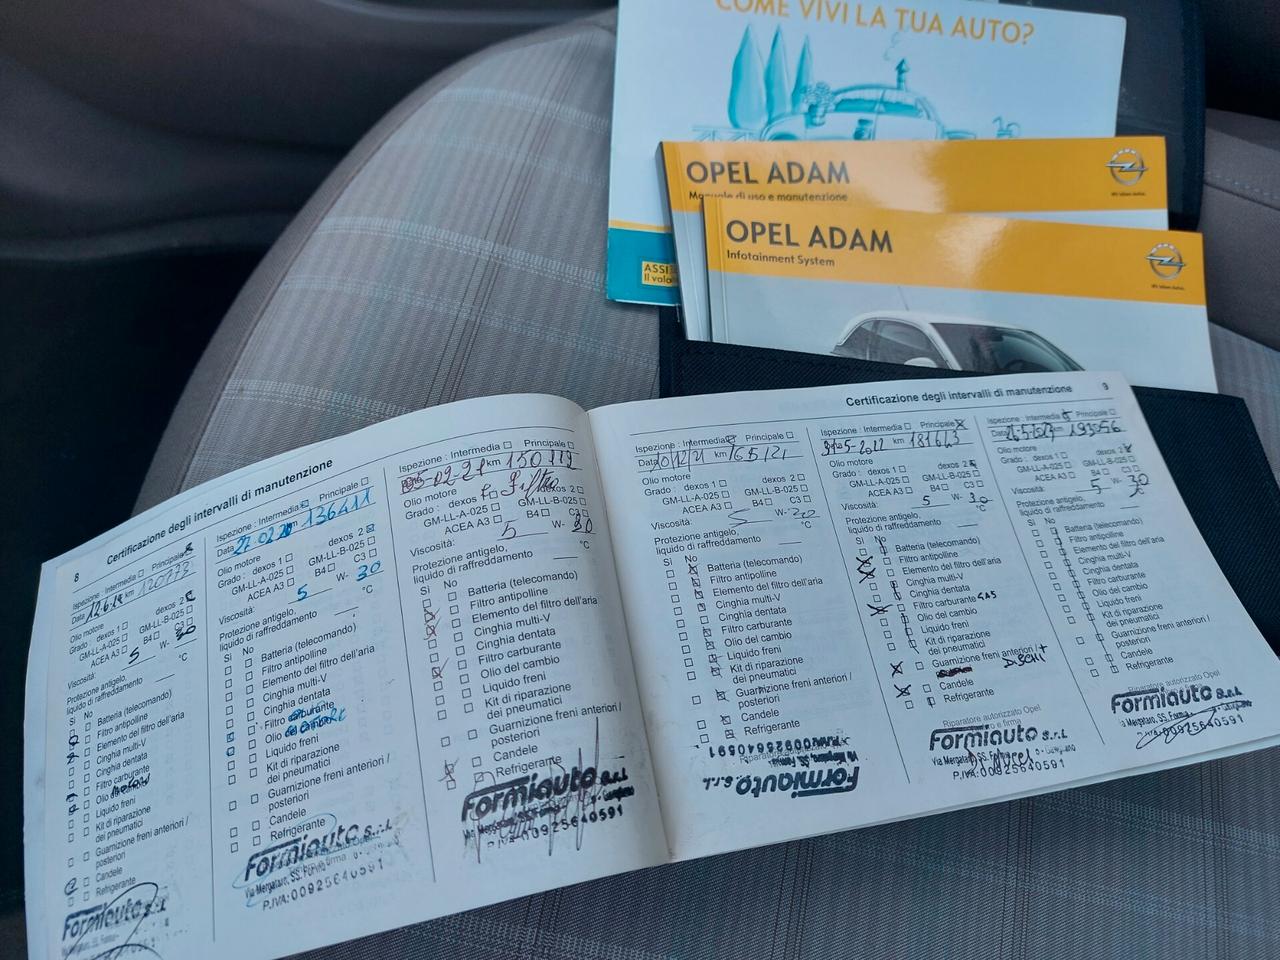 COME VIVI LA TUA AUTO?
OPEL ADAM
Manuale di uso e manutenzione
OPEL ADAM
Infotainment System
ASSI
Il valo
8
Certificazione degli intervalli di manutenzione
Ispezione: Intermedia Principale
Data 12.6.19 km 120773
Olio motore
Grado: dexos 1 dexos 2
GM-LL-A-025 GM-LL-B-025
ACEA A3 B4 C3
Viscosità: 5 W- 30
Protezione antigelo,
liquido di raffreddamento °C
Si No
Batteria (telecomando)
Filtro antipolline
Elemento del filtro dell'aria
Cinghia multi-V
Cinghia dentata
Filtro carburante
Olio
Liquido freni
Kit di riparazione
dei pneumatici
Guarnizione freni anteriori /
posteriori
Candele
Refrigerante
Formiauto s.r.l.
Via Mergataro, SS. Formia
Ispezione: Intermedia Principale
Data 27.02.20 km 136411
Olio motore
Grado: dexos 1 dexos 2
GM-LL-A-025 GM-LL-B-025
ACEA A3 B4 C3
Viscosità: 5 W- 30
Protezione antigelo,
liquido di raffreddamento °C
Si No
Batteria (telecomando)
Filtro antipolline
Elemento del filtro dell'aria
Cinghia multi-V
Cinghia dentata
Filtro carburante
Olio del cambio
Liquido freni
Kit di riparazione
dei pneumatici
Guarnizione freni anteriori /
posteriori
Candele
Refrigerante
Formiauto s.r.l.
Via Mergataro, SS. Formia
P.IVA:00925640591
Ispezione: Intermedia Principale
05-02-21 km 150119
Olio motore
Grado: dexos 1 dexos 2
GM-LL-A-025 GM-LL-B-025
ACEA A3 B4 C3
Viscosità: 5 W- 30
Protezione antigelo,
liquido di raffreddamento °C
Si No
Batteria (telecomando)
Filtro antipolline
Elemento del filtro dell'aria
Cinghia multi-V
Cinghia dentata
Filtro carburante
Olio del cambio
Liquido freni
Kit di riparazione
dei pneumatici
Guarnizione freni anteriori /
posteriori
Candele
Refrigerante
Formiauto s.r.l.
Via Mergataro, SS.
P.IVA:00925640591
Certificazione degli intervalli di manutenzione
9
Ispezione: Intermedia Principale
Data 10/12/21 km 165121
Olio motore
Grado: dexos 1 dexos 2
GM-LL-A-025 GM-LL-B-025
ACEA A3 B4 C3
Viscosità: 5 W- 30
Protezione antigelo,
liquido di raffreddamento °C
Si No
Batteria (telecomando)
Filtro antipolline
Elemento del filtro dell'aria
Cinghia multi-V
Cinghia dentata
Filtro carburante
Olio del cambio
Liquido freni
Kit di riparazione
dei pneumatici
Guarnizione freni anteriori /
posteriori
Candele
Refrigerante
P.IVA:00925640591
Formiauto s.r.l.
Ispezione: Intermedia Principale
31-5-2022 km 181643
Olio motore
Grado: dexos 1 dexos 2
GM-LL-A-025 GM-LL-B-025
ACEA A3 B4 C3
Viscosità: 5 W- 30
Protezione antigelo,
liquido di raffreddamento °C
Si No
Batteria (telecomando)
Filtro antipolline
Elemento del filtro dell'aria
Cinghia multi-V
Cinghia dentata
Filtro carburante GAS
Olio del cambio
Liquido freni
Kit di riparazione
dei pneumatici
Guarnizione freni anteriori / +
DISCHI
Candele
Refrigerante
Riparatore autorizzato Opel
Formiauto s.r.l.
Via Mergataro, SS. Formia
P.IVA:00925640591
Ispezione: Intermedia Principale
Data km 193056
Olio motore
Grado: dexos 1 dexos 2
GM-LL-A-025 GM-LL-B-025
ACEA A3 B4 C3
Viscosità: 5 W- 30
Protezione antigelo,
liquido di raffreddamento °C
Si No
Batteria (telecomando)
Filtro antipolline
Elemento del filtro dell'aria
Cinghia multi-V
Cinghia dentata
Filtro carburante
Olio del cambio
Liquido freni
Kit di riparazione
dei pneumatici
Guarnizione freni anteriori /
posteriori
Candele
Refrigerante
Riparatore autorizzato Opel
Formiauto s.r.l.
Via Mergataro, SS. Formia
P.IVA:00925640591